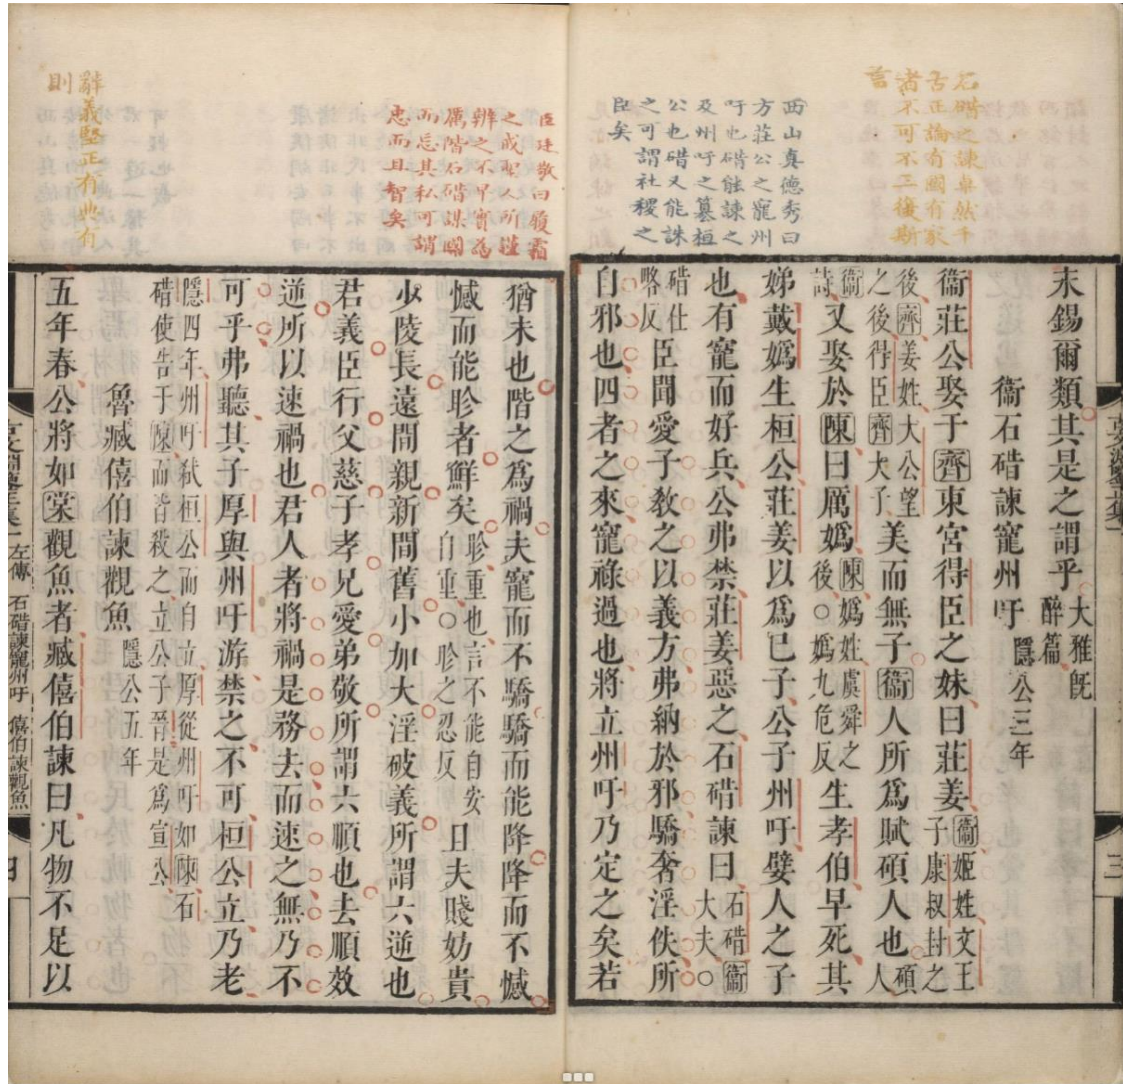 石碏之諫卓然千
古正論有國有家
者不可不三復斯
言
西山真德秀曰
方莊公之寵州
吁也碏能諫之
及州吁之篡桓
公也碏又能誅
之可謂社稷之
臣矣
三
永錫爾類其是之謂乎大雅旣醉篇
衞石碏諫寵州吁隱公三年
衞莊公娶于齊東宮得臣之妹曰莊姜衞姬姓文王子康叔封之
後齊姜姓大公望之後得臣齊大子美而無子衞人所爲賦碩人也碩人
衞詩又娶於陳曰厲嬀陳嬀姓虞舜之後○嬀九危反生孝伯早死其
娣戴嬀生桓公莊姜以爲己子公子州吁嬖人之子
也有寵而好兵公弗禁莊姜惡之石碏諫曰石碏衞大夫○
碏七畧反臣聞愛子敎之以義方弗納於邪驕奢淫佚所
自邪也四者之來寵祿過也將立州吁乃定之矣若
臣廷敬曰履霜
之戒聖人所謹
辨之不早實為
厲階石碏謀國
而忘其私可謂
忠而且智矣
辭義堅正有典有
則
猶未也階之爲禍夫寵而不驕驕而能降降而不憾
憾而能眕者鮮矣眕重也言不能自安自重○眕之忍反且夫賤妨貴
少陵長遠間親新間舊小加大淫破義所謂六逆也
君義臣行父慈子孝兄愛弟敬所謂六順也去順效
逆所以速禍也君人者將禍是務去而速之無乃不
可乎弗聽其子厚與州吁游禁之不可桓公立乃老
隱四年州吁弒桓公而自立厚從州吁如陳石碏使告于陳而皆殺之立公子晉是爲宣公
魯臧僖伯諫觀魚隱公五年
五年春公將如棠觀魚者臧僖伯諫曰凡物不足以
左傳 石碏諫寵州吁 僖伯諫觀魚